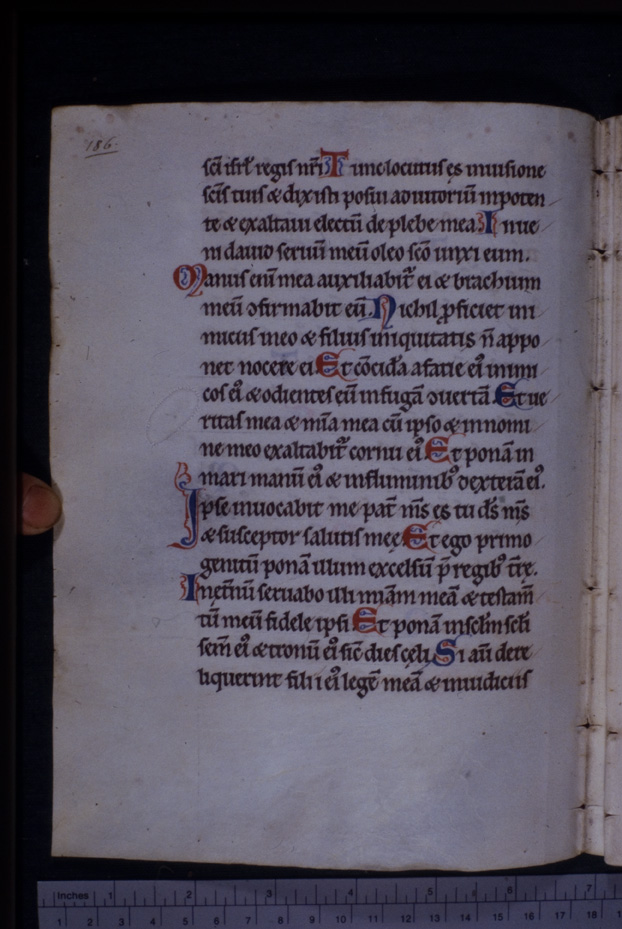 186.
sc̄i isrl̄ regis nr̄i Tunc locutus es inuisione
sc̄is tuis & dixisti posui adiutoriū inpoten
te & exaltaui electū de plebe mea. Inue
ni dauid seruū meū oleo sc̄o unxi eum.
Manus enī mea auxiliabit᷑ ei & brachium
meū ↄfirmabit eū. Nichil ꝓficiet ini
micus ineo & filius iniquitatis n̄ appo
net nocere ei Et cōcidā afacie eiꝰ inimi
cos eiꝰ & odientes eū infugā ↄuertā. Et ue
ritas mea & mīa mea cū ipso & innomi
ne meo exaltabit᷑ cornu eiꝰ Et ponā in
mari manū eiꝰ & influminibꝰ dexterā eiꝰ.
Ipse inuocabit me pat᷑ m̄s es tu ds̄ m̄s
& susceptor salutis meę Et ego primo
genitū ponā illum excelsū p̄ regibꝰ t̄re.
Inet̄nū seruabo illi miām meā & testam̄
tū meū fidele ipsi Et ponā insclm̄ scli
sem̄ eiꝰ & tronū eiꝰ sic̄ dies cęli. Si aū dere
liquerint filii eiꝰ legē meā & iniudiciis
Inches 1 2 3 4 5 6 7
1 2 3 4 5 6 7 8 9 10 11 12 13 14 15 16 17 18